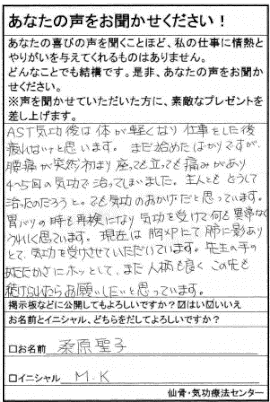 あなたの声をお聞かせください！
あなたの喜びの声を聞くことほど、私の仕事に情熱と
やりがいを与えてくれるものはありません。
どんなことでも結構です。是非、あなたの声をお聞か
せください。
※声を聞かせていただいた方に、素敵なプレゼントを
差し上げます。
AST気功後は体が軽くなり仕事をした後
疲れないと思います。まだ始めたばかりですが、
腰痛が突然治まり座っても立っても痛みがあり
4~5回の気功で治ってしまいました。主人ともどうして
治ったのだろうとても気功のおかげだと思っています。
胃バリの時も再検になり気功を受けて何も異常なく
うれしく思ています。現在は胸やにて肺に影あり
とて、気功を受けさせていただいています。先生の手の
あたたかさにホッとして、また人柄も良くこの先も
お願いしたいと思っています。
掲示板などに公開してもよろしいですか？☑はい□いいえ
お名前とイニシャル、どちらをだしてよろしいですか？
□お名前 桑原聖子
□イニシャル M.K
仙骨・気功療法センター